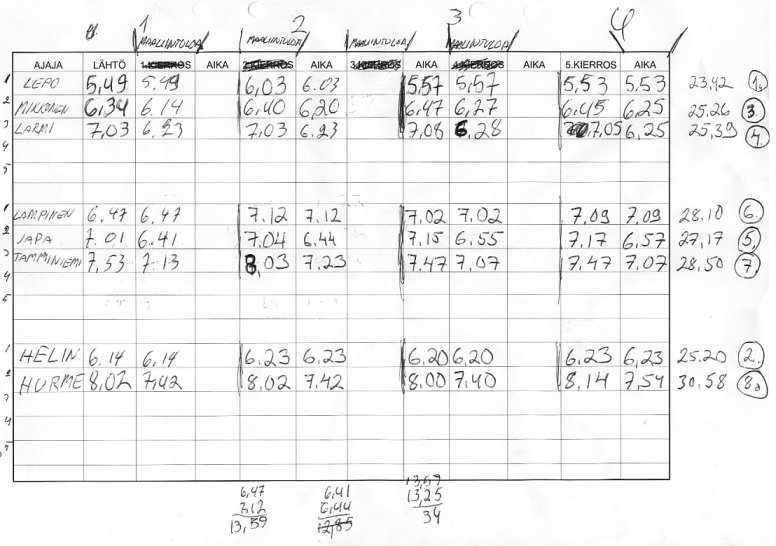 0. 1 2 3 4
MAALIINTULOA MAALIINTULOA MAALIINTULOA MAALIINTULOA
AJAJA LÄHTÖ 1.KIERROS AIKA 2.KIERROS AIKA 3.KIERROS AIKA 4.KIERROS AIKA 5.KIERROS AIKA
1 LEPO 5,49 5,49 6,03 6.03 5,57 5,57 5,53 5,53 23,42 1.
2 MIKKONEN 6,34 6.14 6,40 6,20 6.47 6,27 6.45 6,25 25,26 3.
3 LARMI 7,03 6.23 7,03 6,23 7,08 6,28 7,05 6,25 25,39 4.
4
5
1 LAMPINEN 6,47 6,47 7.12 7,12 7,02 7,02 7,09 7,09 28.10 6.
2 JAPA 7.01 6.41 7,04 6,44 7,15 6,55 7,17 6,57 27,17 5,
3 TAMMINIEMI 7,53 7.13 8,03 7,23 7,47 7,07 7,47 7,07 28,50 7,
4
5
1 HELIN 6.14 6,14 6.23 6,23 6,20 6,20 6,23 6,23 25.20 2.
2 HURME 8,02 7,42 8,02 7,42 8,00 7,40 8,14 7,54 30,58 8.
3
4
5
6,47 6,41 13,59
7,12 6,44 13,25
13,59 12,85 34